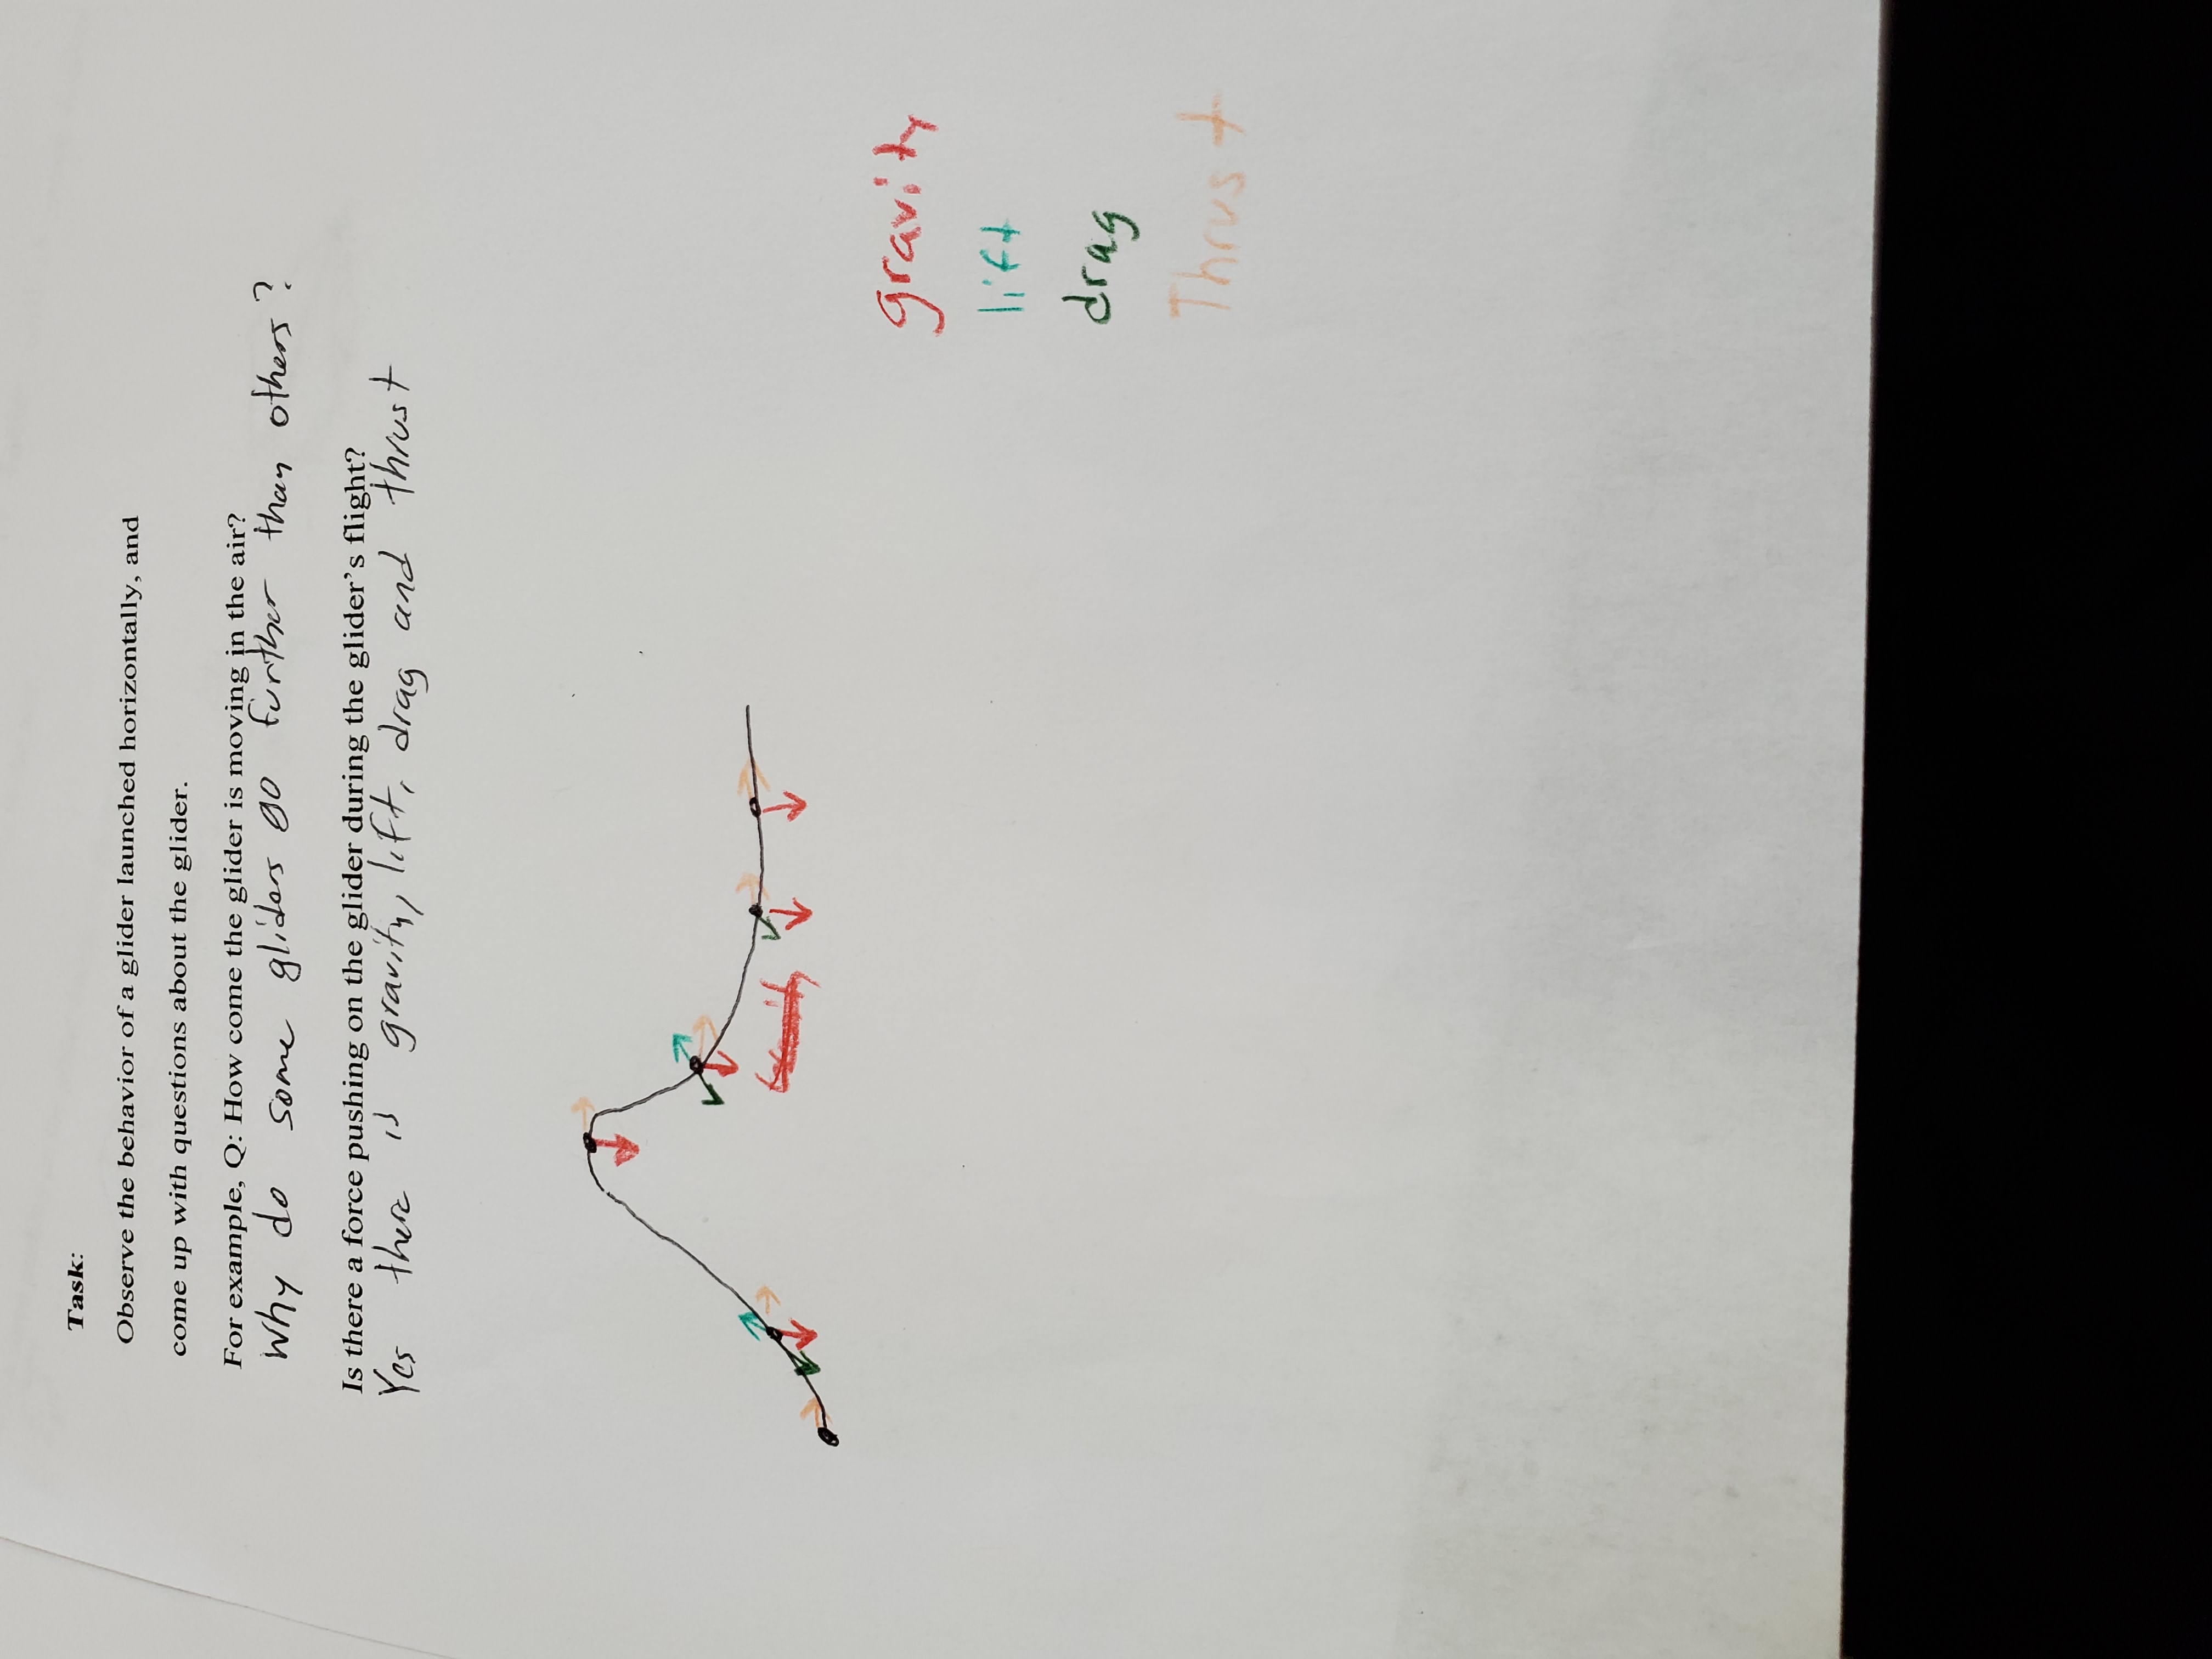 Task:
Observe the behavior of a glider launched horizontally, and
come up with questions about the glider.
For example, Q: How come the glider is moving in the air?
Why do some gliders go further than others?
Is there a force pushing on the glider during the glider's flight?
Yes there is gravity, lift, drag and thrust
gravity
gravity
lift
drag
Thrust